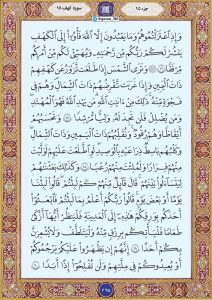 جزء ۱۵
سورة كهف ۱۸
وَإِذِ ٱعْتَزَلْتُمُوهُمْ وَمَا يَعْبُدُونَ إِلَّا ٱللَّهَ فَأْوُۥٓا۟ إِلَى ٱلْكَهْفِ
يَنشُرْ لَكُمْ رَبُّكُم مِّن رَّحْمَتِهِۦ وَيُهَيِّئْ لَكُم مِّنْ أَمْرِكُم
مِّرْفَقًا ۝١٦ وَتَرَى ٱلشَّمْسَ إِذَا طَلَعَت تَّزَٰوَرُ عَن كَهْفِهِمْ
ذَاتَ ٱلْيَمِينِ وَإِذَا غَرَبَت تَّقْرِضُهُمْ ذَاتَ ٱلشِّمَالِ وَهُمْ فِى
فَجْوَةٍ مِّنْهُ ذَٰلِكَ مِنْ ءَايَٰتِ ٱللَّهِ مَن يَهْدِ ٱللَّهُ فَهُوَ ٱلْمُهْتَدِ
وَمَن يُضْلِلْ فَلَن تَجِدَ لَهُۥ وَلِيًّا مُّرْشِدًا ۝١٧ وَتَحْسَبُهُمْ
أَيْقَاظًا وَهُمْ رُقُودٌ وَنُقَلِّبُهُمْ ذَاتَ ٱلْيَمِينِ وَذَاتَ ٱلشِّمَالِ
وَكَلْبُهُم بَٰسِطٌ ذِرَاعَيْهِ بِٱلْوَصِيدِ لَوِ ٱطَّلَعْتَ عَلَيْهِمْ لَوَلَّيْتَ
مِنْهُمْ فِرَارًا وَلَمُلِئْتَ مِنْهُمْ رُعْبًا ۝١٨ وَكَذَٰلِكَ بَعَثْنَٰهُمْ
لِيَتَسَآءَلُوا۟ بَيْنَهُمْ قَالَ قَآئِلٌ مِّنْهُمْ كَمْ لَبِثْتُمْ قَالُوا۟ لَبِثْنَا
يَوْمًا أَوْ بَعْضَ يَوْمٍ قَالُوا۟ رَبُّكُمْ أَعْلَمُ بِمَا لَبِثْتُمْ فَٱبْعَثُوٓا۟
أَحَدَكُم بِوَرِقِكُمْ هَٰذِهِۦٓ إِلَى ٱلْمَدِينَةِ فَلْيَنظُرْ أَيُّهَآ أَزْكَىٰ
طَعَامًا فَلْيَأْتِكُم بِرِزْقٍ مِّنْهُ وَلْيَتَلَطَّفْ وَلَا يُشْعِرَنَّ
بِكُمْ أَحَدًا ۝١٩ إِنَّهُمْ إِن يَظْهَرُوا۟ عَلَيْكُمْ يَرْجُمُوكُمْ
أَوْ يُعِيدُوكُمْ فِى مِلَّتِهِمْ وَلَن تُفْلِحُوٓا۟ إِذًا أَبَدًا ۝٢٠
۲۹۵